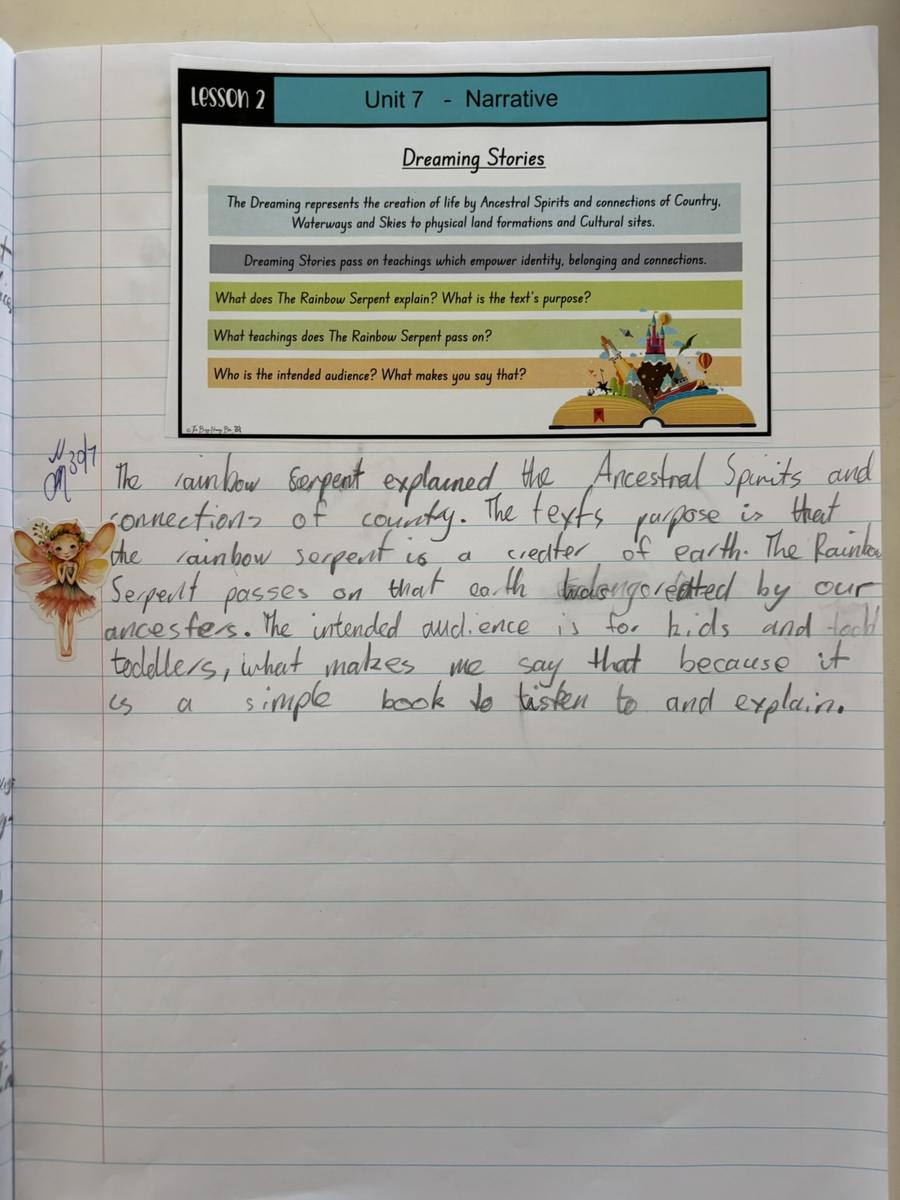 Lesson 2
Unit 7 - Narrative
Dreaming Stories
The Dreaming represents the creation of life by Ancestral Spirits and connections of Country,
Waterways and Skies to physical land formations and Cultural sites.
Dreaming Stories pass on teachings which empower identity, belonging and connections.
What does The Rainbow Serpent explain? What is the text's purpose?
What teachings does The Rainbow Serpent pass on?
Who is the intended audience? What makes you say that?
30/7
The rainbow serpent explained the Ancestral Spirits and
connections of county. The texts purpose is that
the rainbow serpent is a creater of earth. The Rainbow
Serpent passes on that earth created by our
ancesters. The intended audience is for kids and todd
toddlers, what makes me say that because it
is a simple book to listen to and explain.